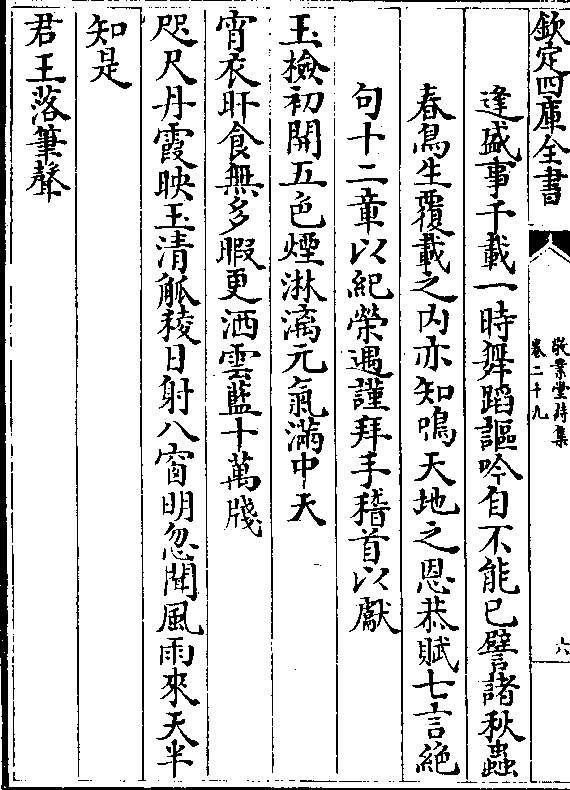 欽定四庫全書
敬業堂詩集
卷二十九
六
逢盛事千載一時舞蹈謳吟自不能已譬諸秋蟲
春鳥生覆載之內亦知鳴天地之恩恭賦七言絶
句十二章以紀榮遇謹拜手稽首以獻
玉檢初開五色煙淋漓元氣滿中天
宵衣旰食無多暇更洒雲藍十萬牋
咫尺丹霞映玉清觚稜日射八窗明忽聞風雨來天半
知是
君王落筆聲